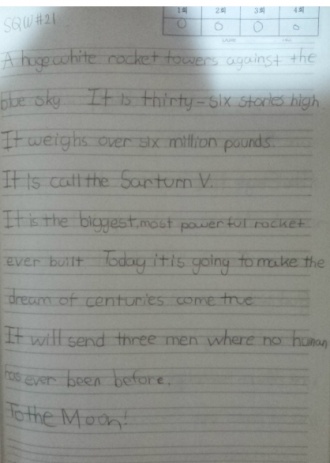 SQW#21
1회 2회 3회 4회
A huge white rocket towers against the
blue sky It is thirty-six stories high.
It weighs over six million pounds.
It is call the Sarturn V.
It is the biggest, most powerful rocket
ever built Today it is going to make the
dream of centuries come true
It will send three men where no human
has ever been before.
To the Moon!